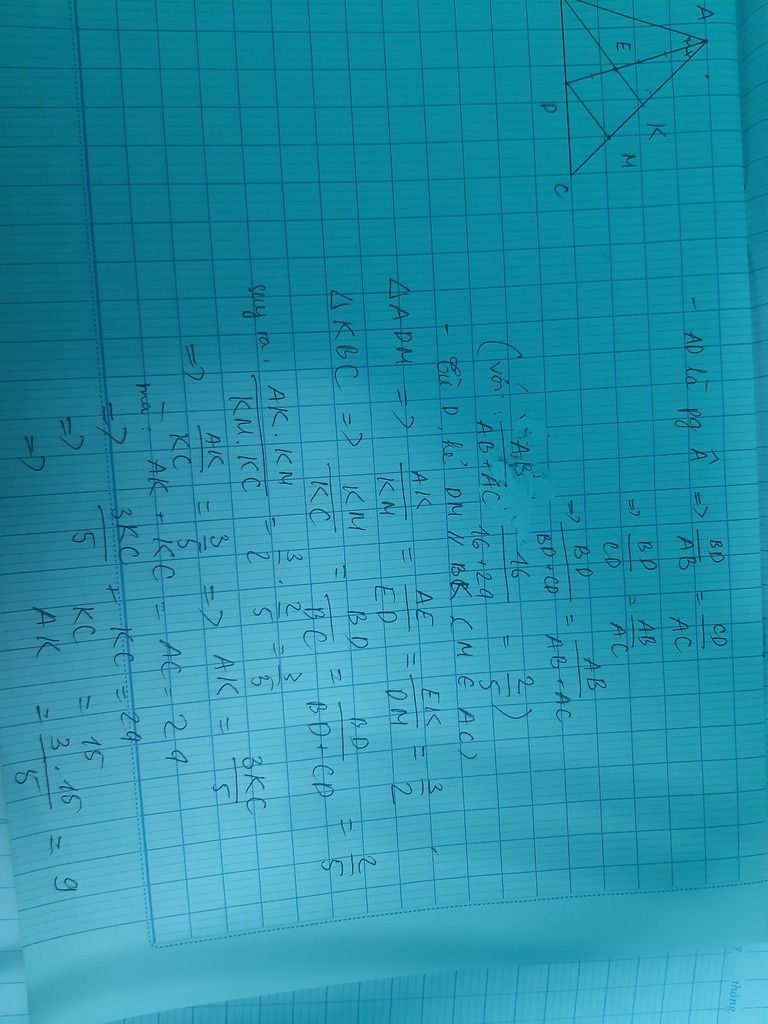 A
E
K
M
D
C
- AD là pg Â => BD/AB = CD/AC
=> BD/CD = AB/AC
=> BD/BD+CD = AB/AB+AC
(với: AB/AB+AC = 16/16+24 = 2/5)
- Từ D, kẻ DM // BK (M ∈ AC)
ΔADM => AK/KM = AE/ED = EK/DM = 3/2
ΔKBC => KM/KC = BD/BC = BD/BD+CD = 2/5
suy ra: AK.KM/KM.KC = 3/2 . 2/5 = 3/5
=> AK/KC = 3/5 => AK = 3KC/5
mà: AK + KC = AC = 24
=> 3KC/5 + KC = 24
=> KC = 15
=> AK = 3.15/5 = 9
tháng